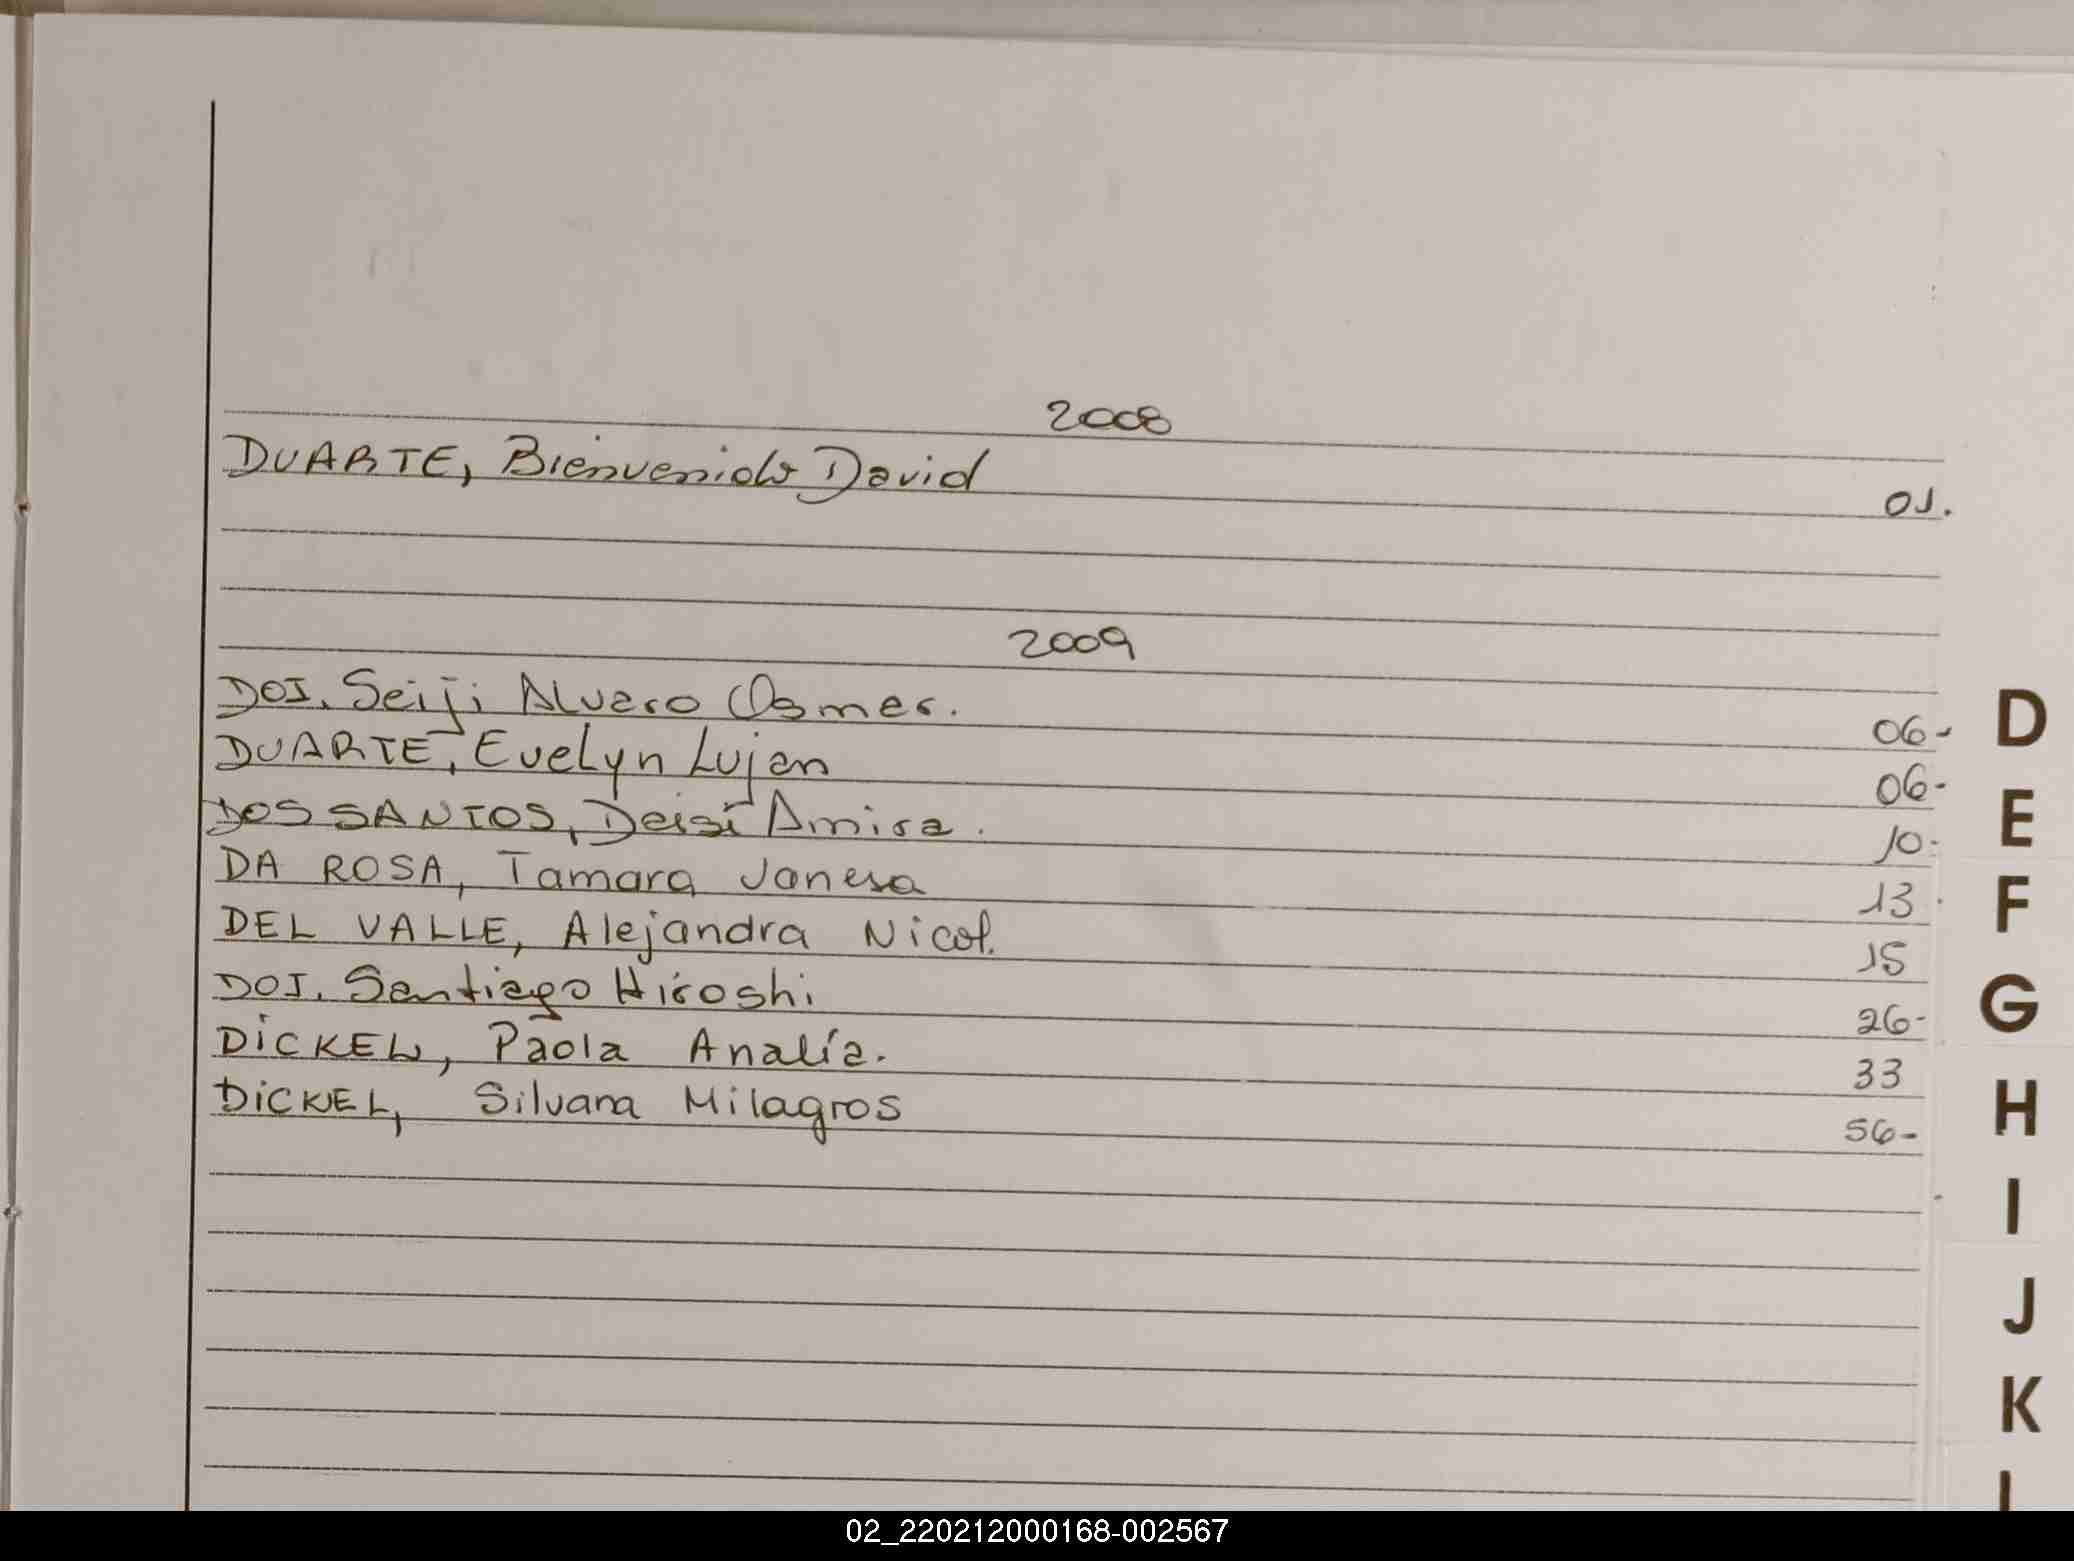 2008
DUARTE, Bienvenido David 01.
2009
DOI, Seiji Alvaro Osmer. 06-
DUARTE, Evelyn Lujan 06-
DOS SANTOS, Deisi Amira. 10-
DA ROSA, Tamara Vanesa 13.
DEL VALLE, Alejandra Nicol. 15
DOI, Santiago Hiroshi 26-
DICKEL, Paola Analía. 33
DICKEL, Silvana Milagros 56-
D
E
F
G
H
I
J
K
02_220212000168-002567